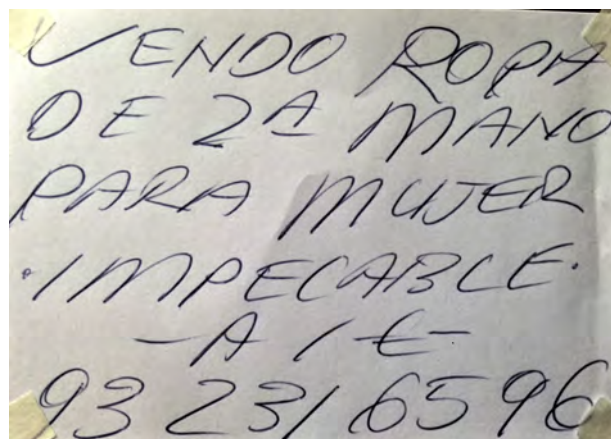 VENDO ROPA
DE 2ª MANO
PARA MUJER
·IMPECABLE·
-A 1€-
93 231 65 96